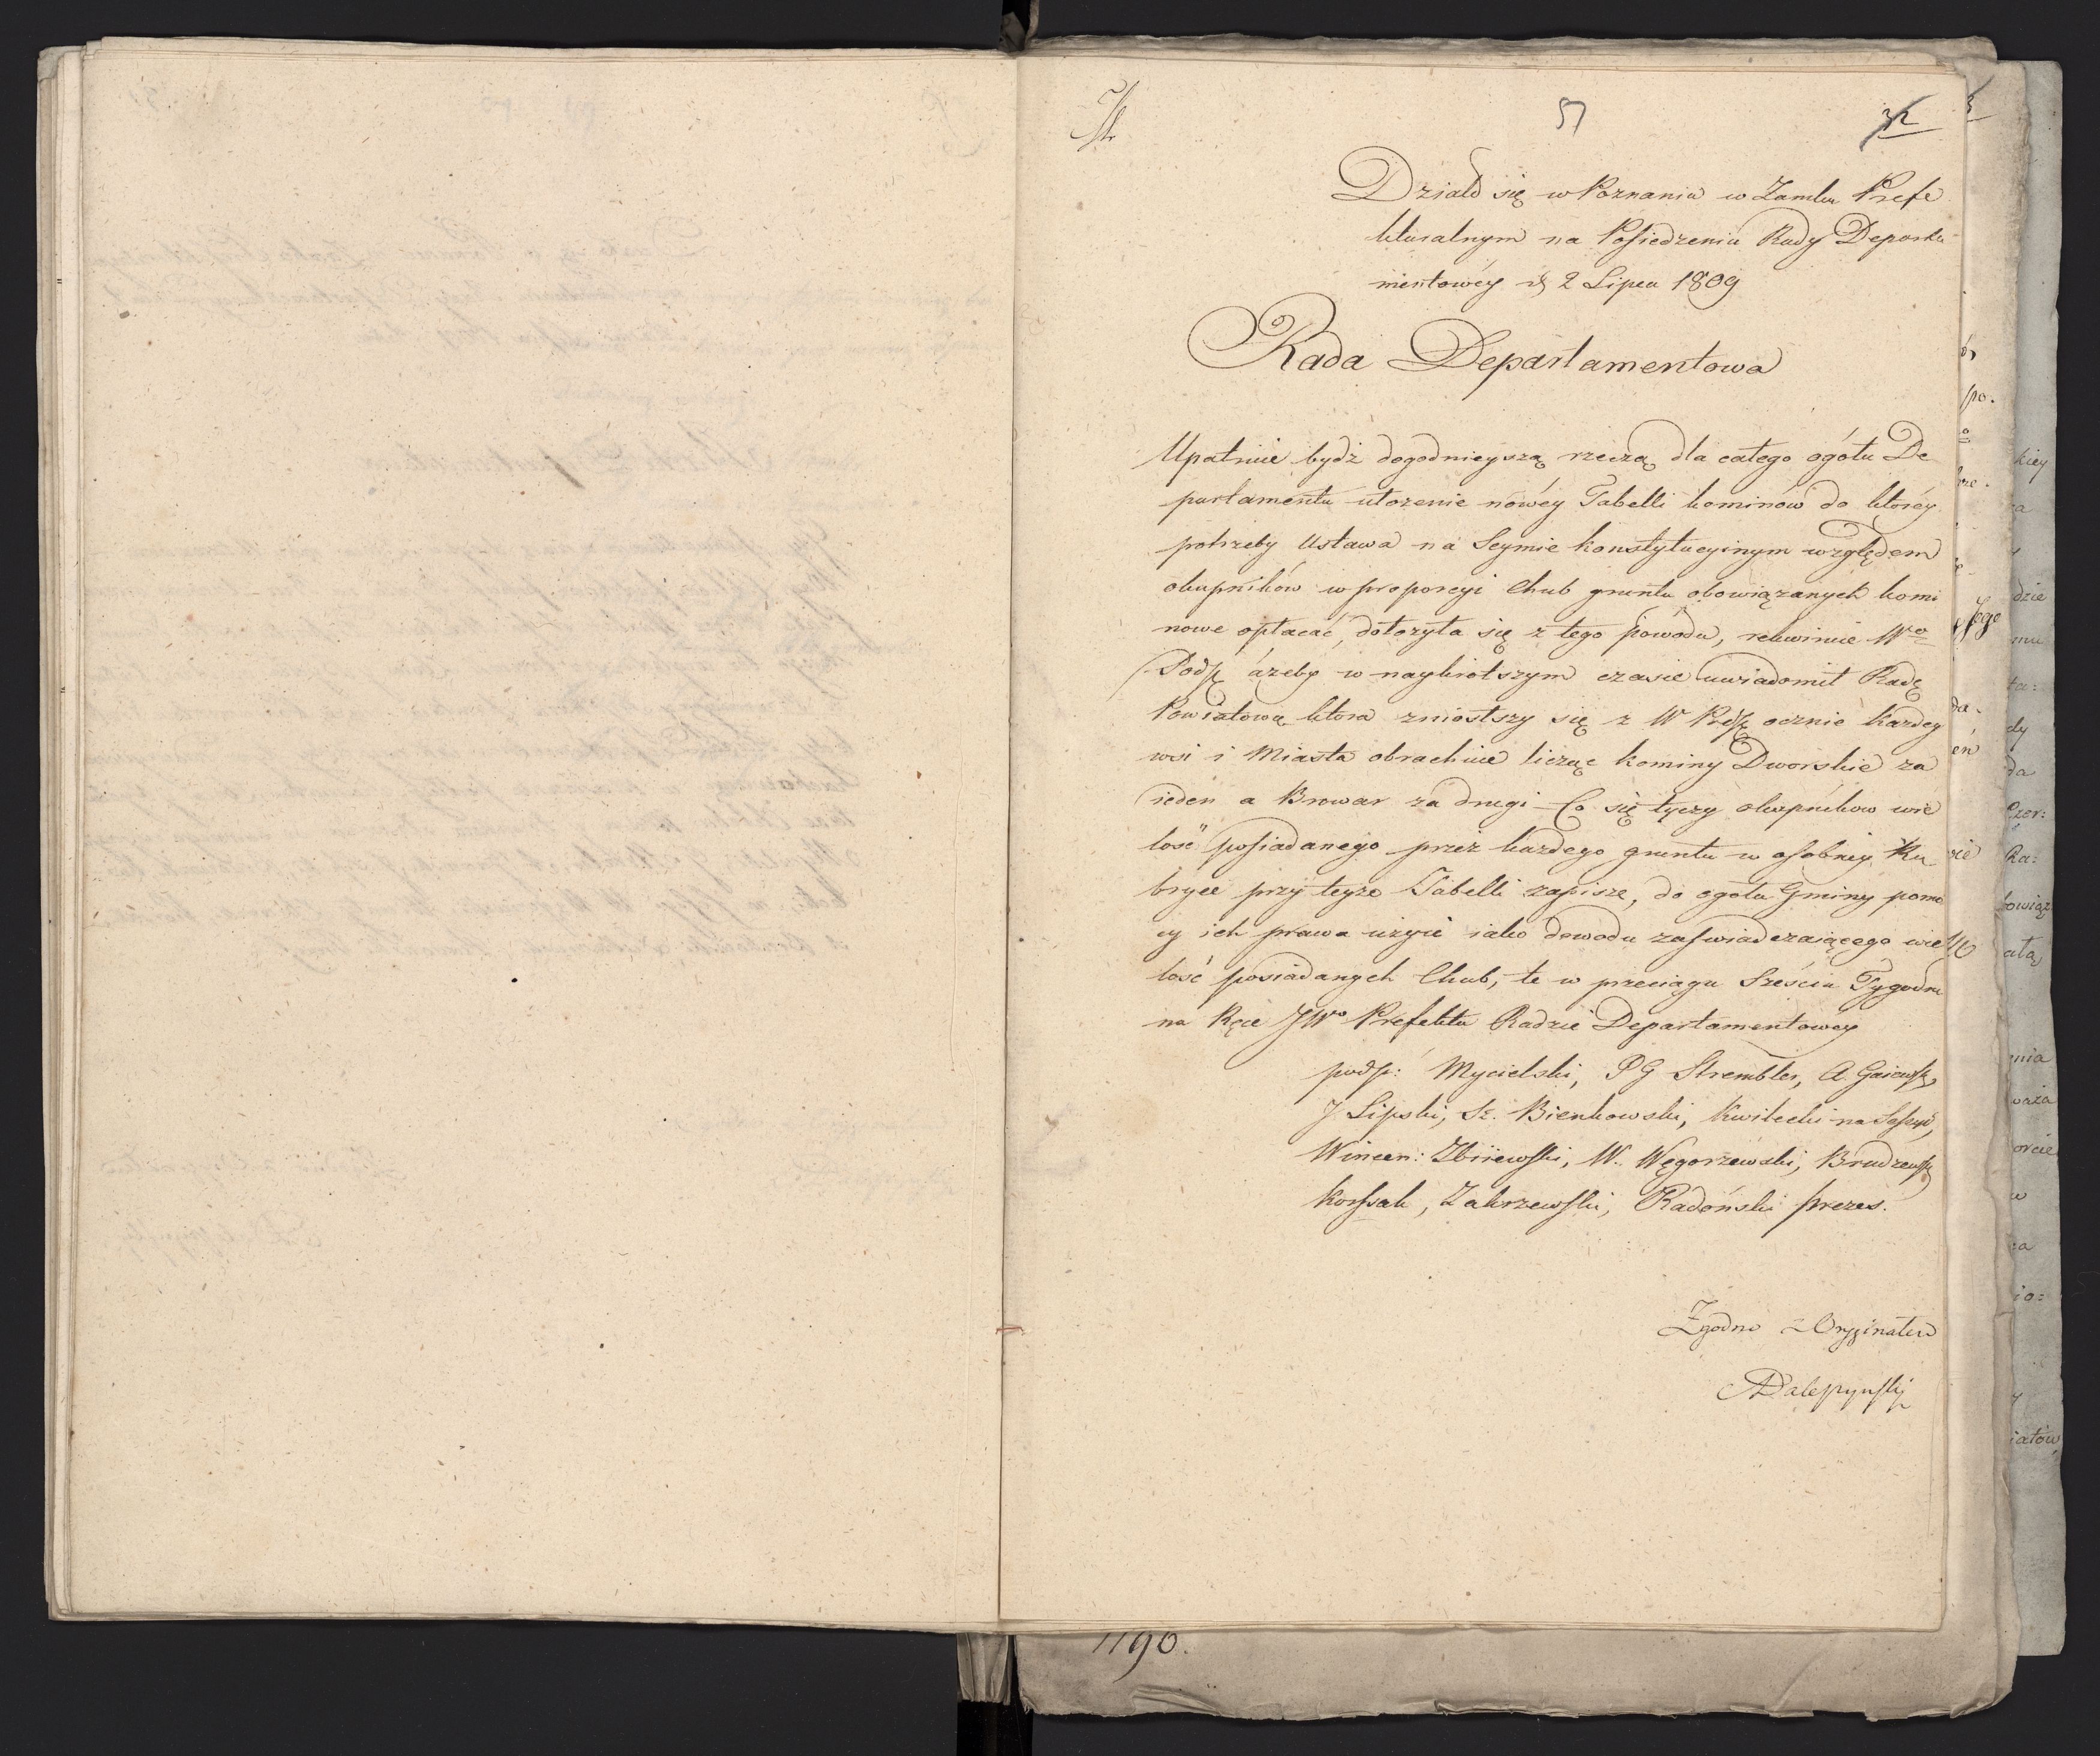 57
32
Działo się w Poznaniu w Zamku Prefe
kturalnym na Posiedzeniu Rady Departa
mentowéy d. 2 Lipca 1809
Rada Departamentowa
Upatruie bydź dogodnieyszą rzeczą dla całego ogółu De
partamentu ułozenie nowéy Tabelli kominow do któréy
potrzeby Ustawa na Seymie konstytucyinym względem
okupników w proporcyi Chub gruntu obowiązanych komi
nowe opłacać, dołozyła się z tego powodu, rekwiruie Wo
Podp. ázeby w naykrótszym czasie uwiadomił Radę
Powiatową która zniosłszy się z W Podp. ocznie każdey
wsi i Miasta obrachuie licząc kominy Dworskie za
ieden a Browar za drugi Co się tyczy okupnikow wie
lość posiadanego przez kazdego gruntu w osobnéy Ru
bryce przy teyze Tabelli zapisze, do ogółu Gminy pomo
cy ich prawa użyie iako dowodu zaświadczaiącego wie
lość posiadanych Chub, te w przeciągu Sześciu Tygodni
na Ręce JWo Prefekta Radzie Departamentowey
podp: Mycielski, P G Strembler, A. Gaiewski
J Lipski, Sz. Bienkowski, Kwilecki na Sessyi,
Wincen: Zbiiewski, W. Węgorzewski, Brudzewski
Korssak, Zakrzewski, Radoński prezes.
Zgodno z Oryginałem
1190.